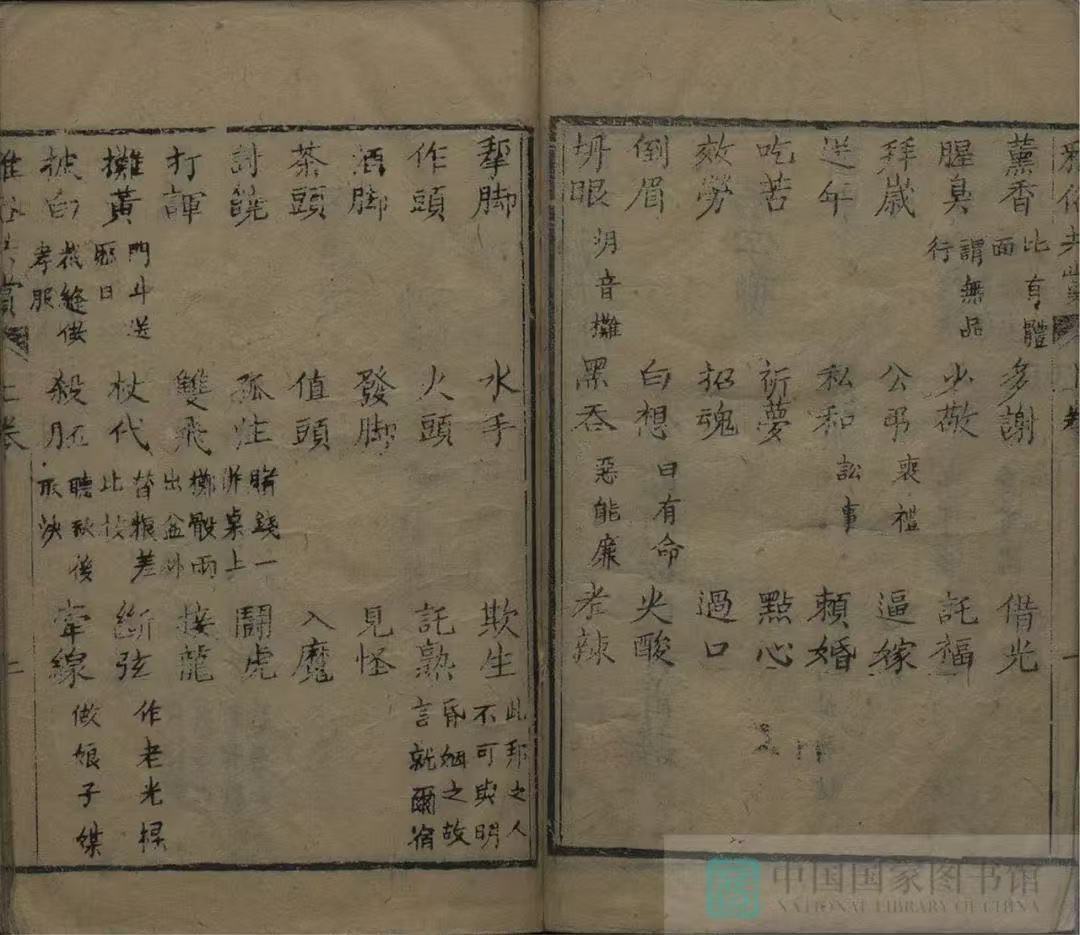 薰香 比有體面 多謝 借光
腥臭 謂無品行 少敬 託福
拜歲 公弔 喪禮 逼嫁
送年 私和 訟事 賴婚
吃苦 祈夢 點心
效勞 招魂 過口
倒眉 白想 曰有命 尖酸
坍眼 明音攤 黑吞 惡能廉 老辣
上卷
一
脚 水手 欺生 此邦之人不可與明
作頭 火頭 託熟 昏姻之故言就爾宿
酒脚 發脚 見怪
茶頭 值頭 入魔
討饒 孤注 賭錢一 桌上 鬪虎
打諢 雙飛 擲骰兩出盆外 接龍
攤黃 門斗送 日 杖代 替 差比 斷弦 作老光棍
披白 裁縫供孝服 殺胚 聽秋後取決 牽線 做娘子媒
上卷
二
中国国家图书馆
NATIONAL LIBRARY OF CHINA